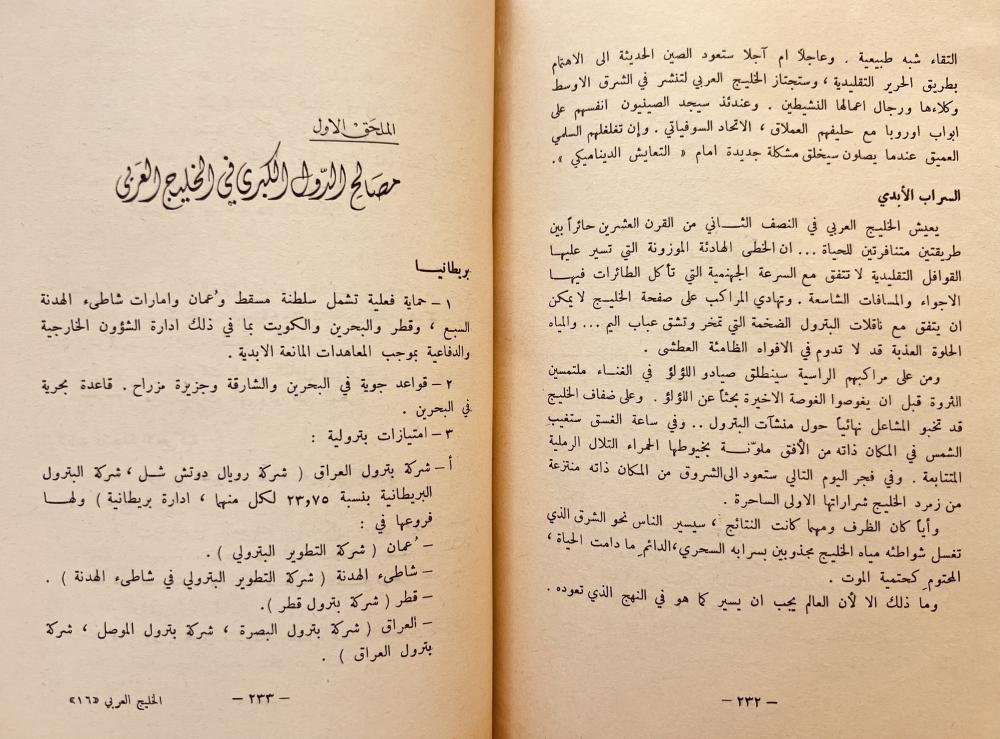 التقاء شبه طبيعية . وعاجلاً ام آجلا ستعود الصين الحديثة الى الاهتمام
بطريق الحرير التقليدية ، وستجتاز الخليج العربي لتنشر في الشرق الاوسط
وكلاءها ورجال اعمالها النشيطين . وعندئذ سيجد الصينيون انفسهم على
ابواب اوروبا مع حليفهم العملاق ، الاتحاد السوفياتي . وإن تغلغلهم السلمي
العميق عندما يصلون سيخلق مشكلة جديدة امام « التعايش الديناميكي ».
السراب الأبدي
يعيش الخليج العربي في النصف الثاني من القرن العشرين حائراً بين
طريقتين متنافرتين للحياة ... ان الخطى الهادئة الموزونة التي تسير عليها
القوافل التقليدية لا تتفق مع السرعة الجهنمية التي تأكل الطائرات فيها
الاجواء والمسافات الشاسعة . وتهادي المراكب على صفحة الخليج لا يمكن
ان يتفق مع ناقلات البترول الضخمة التي تمخر وتشق عباب اليم ... والمياه
الحلوة العذبة قد لا تدوم في الافواه الظامئة العطشى .
ومن على مراكبهم الراسية سينطلق صيادو اللؤلؤ في الغناء ملتمسين
الثروة قبل ان يغوصوا الغوصة الاخيرة بحثاً عن اللؤلؤ . وعلى ضفاف الخليج
قد تخبو المشاعل نهائياً حول منشآت البترول .. وفي ساعة الغسق ستغيب
الشمس في المكان ذاته من الأفق ملوّنة بخيوطها الحمراء التلال الرملية
المتتابعة . وفي فجر اليوم التالي ستعود الى الشروق من المكان ذاته منتزعة
من زمرد الخليج شراراتها الاولى الساحرة .
وأياً كان الظرف ومهما كانت النتائج ، سيسير الناس نحو الشرق الذي
تغسل شواطئه مياه الخليج مجذوبين بسرابه السحري، الدائم ما دامت الحياة ،
المحتوم كحتمية الموت .
وما ذلك الا لأن العالم يجب ان يسير كما هو في النهج الذي تعوده .
— ٢٣٢ —
الملحق الاول
مصالح الدّول الكبرى في الخليج العَربي
بريطانيا
١ – حماية فعلية تشمل سلطنة مسقط وعُمان وامارات شاطىء الهدنة
السبع ، وقطر والبحرين والكويت بما في ذلك ادارة الشؤون الخارجية
والدفاعية بموجب المعاهدات المانعة الابدية .
٢ – قواعد جوية في البحرين والشارقة وجزيرة مزراح . قاعدة بحرية
في البحرين .
٣ – امتيازات بترولية :
أ – شركة بترول العراق ( شركة رويال دوتش شل ، شركة البترول
البريطانية بنسبة ٢٣,٧٥ لكل منهما ، ادارة بريطانية ) ولها
فروعها في :
– عُمان ( شركة التطوير البترولي ) .
– شاطىء الهدنة ( شركة التطوير البترولي في شاطىء الهدنة ) .
– قطر ( شركة بترول قطر ).
– العراق ( شركة بترول البصرة ، شركة بترول الموصل ، شركة
بترول العراق ) .
— ٢٣٣ —
الخليج العربي «١٦»